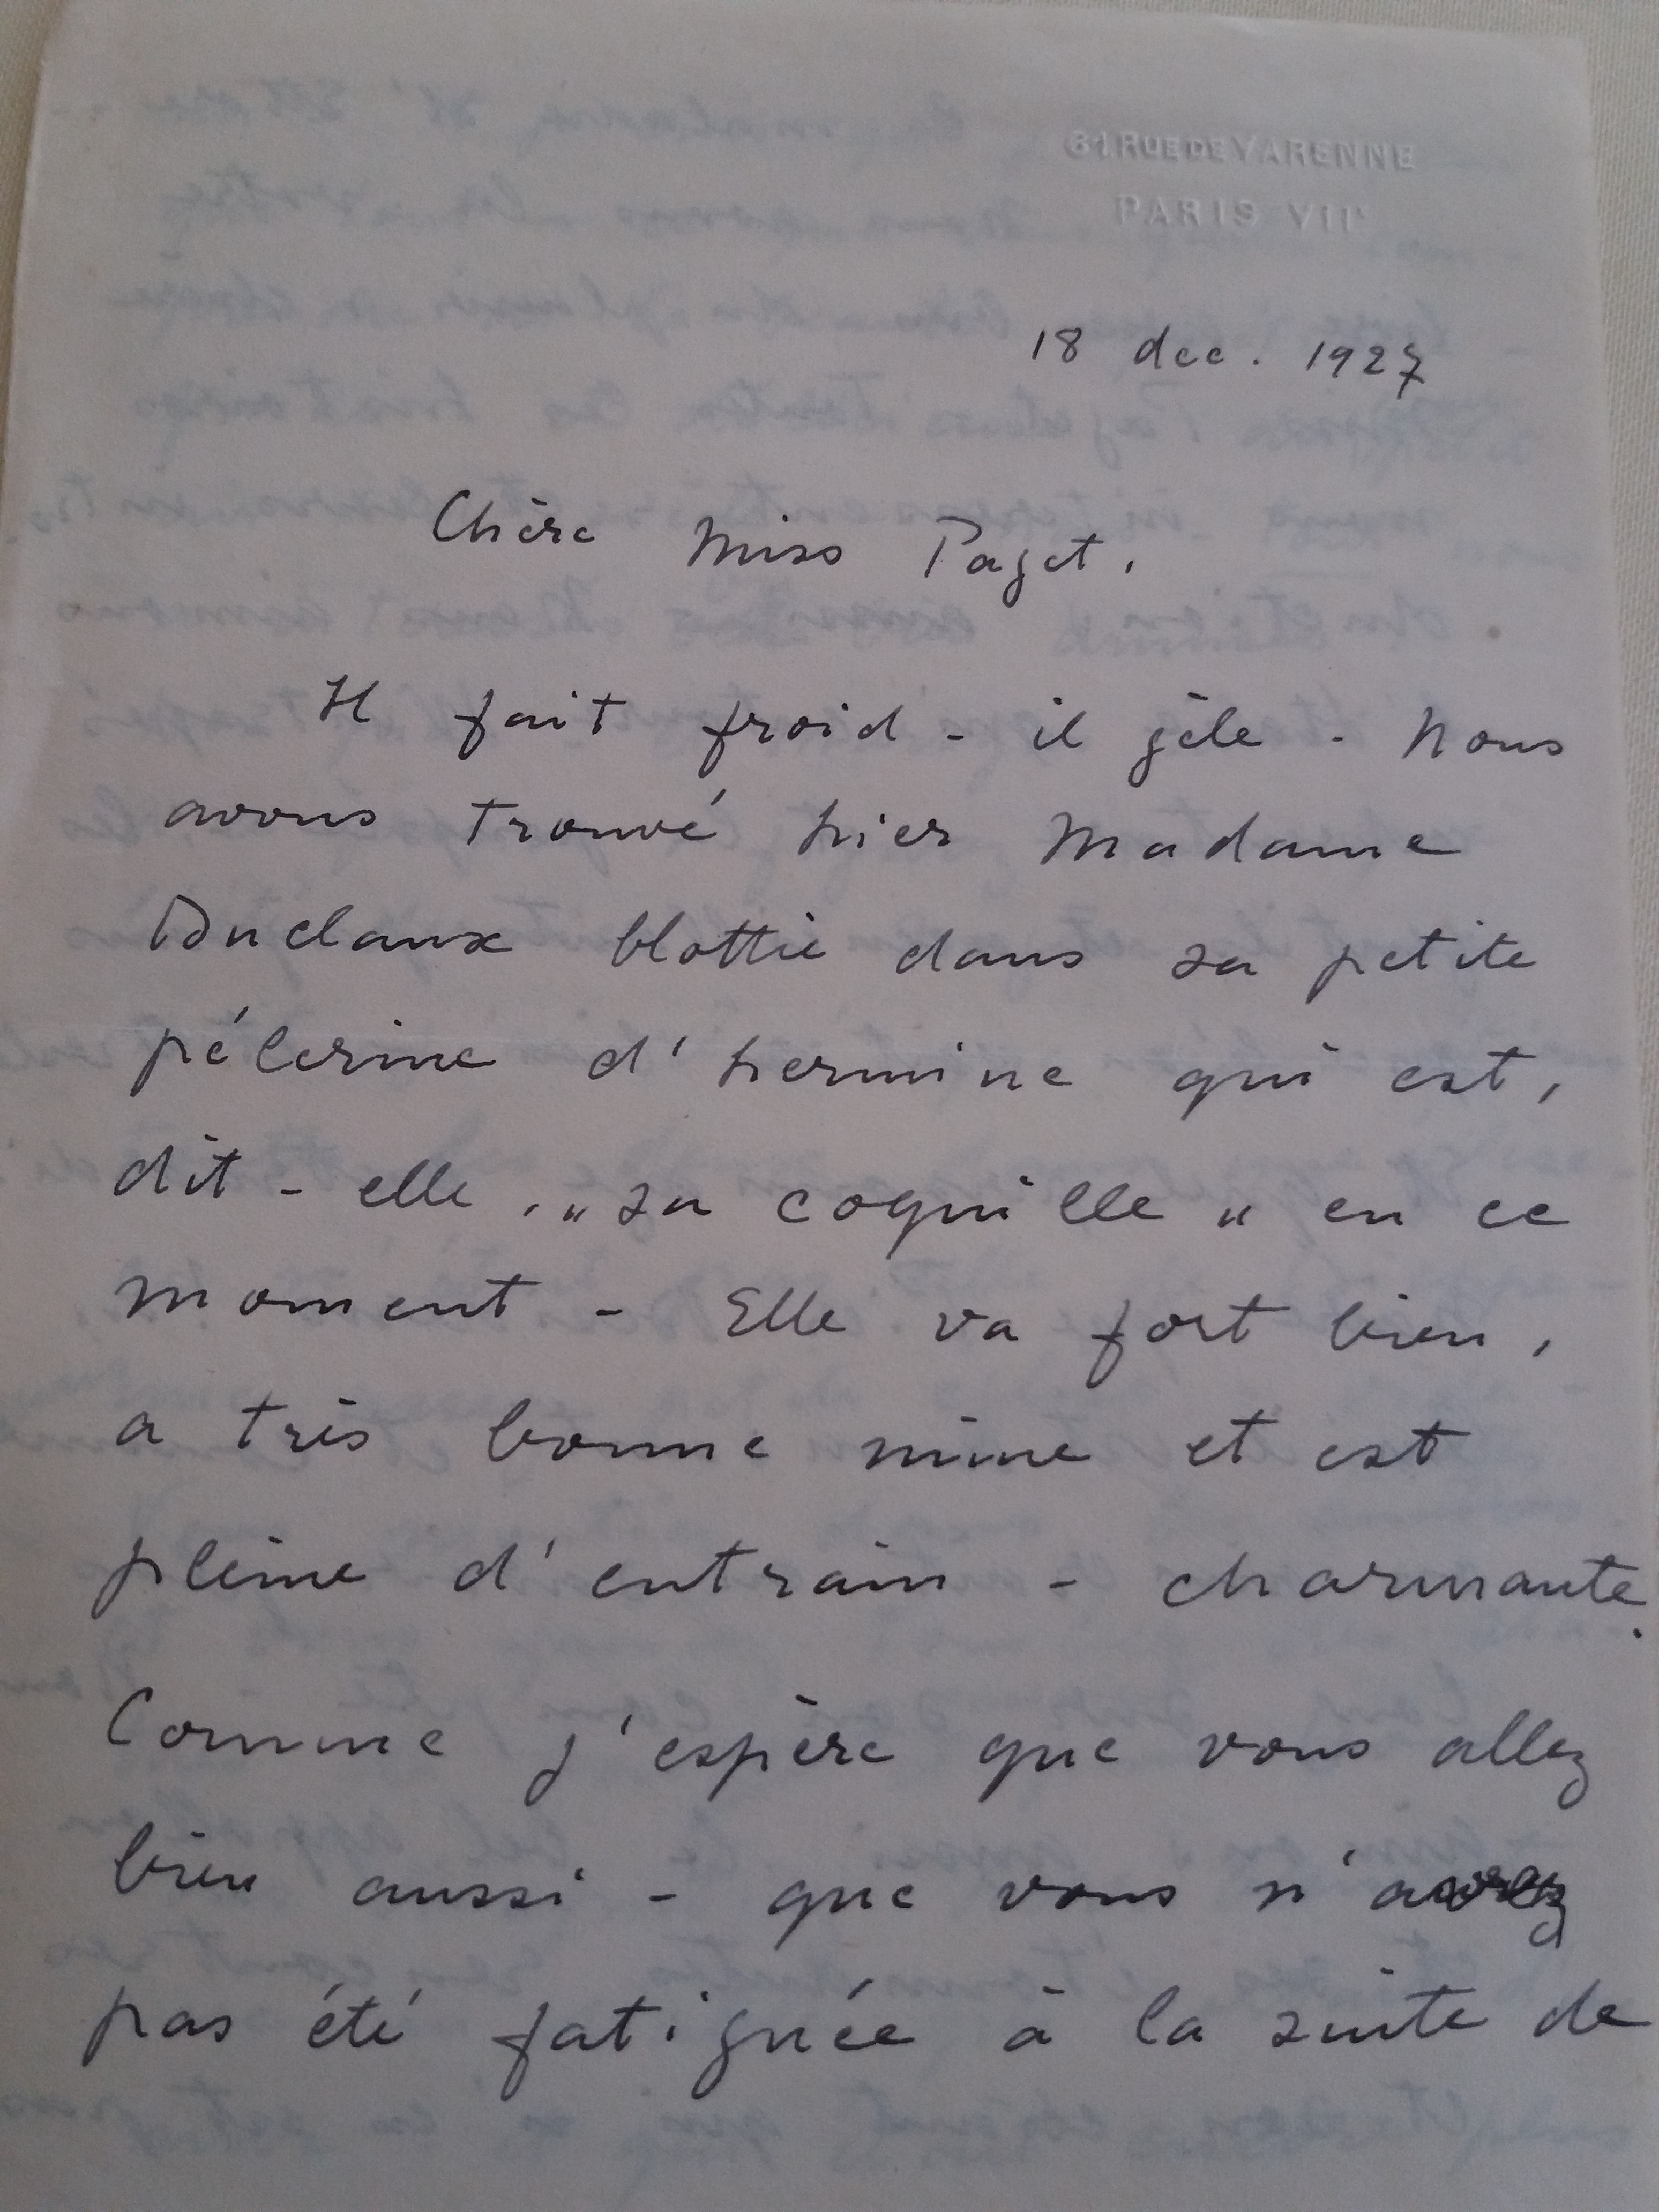 61 RUE DE VARENNE
PARIS VIIe
18 dec. 1927
Chère Miss Paget,
Il fait froid - il gèle - Nous
avons trouvé hier Madame
Duclaux blottie dans sa petite
pélerine d'hermine qui est,
dit-elle, "sa coquille" en ce
moment - Elle va fort bien,
a très bonne mine et est
pleine d'entrain - charmante.
Comme j'espère que vous allez
bien aussi - que vous n'avez
pas été fatiguée à la suite de